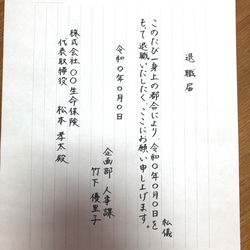 退職届
私儀
このたび一身上の都合により、令和〇年〇月〇日を
もって退職いたしたく、ここにお願い申し上げます。
令和〇年〇月〇日
企画部 人事課
竹下 優里子
株式会社〇〇生命保険
代表取締役 松本 孝太 殿